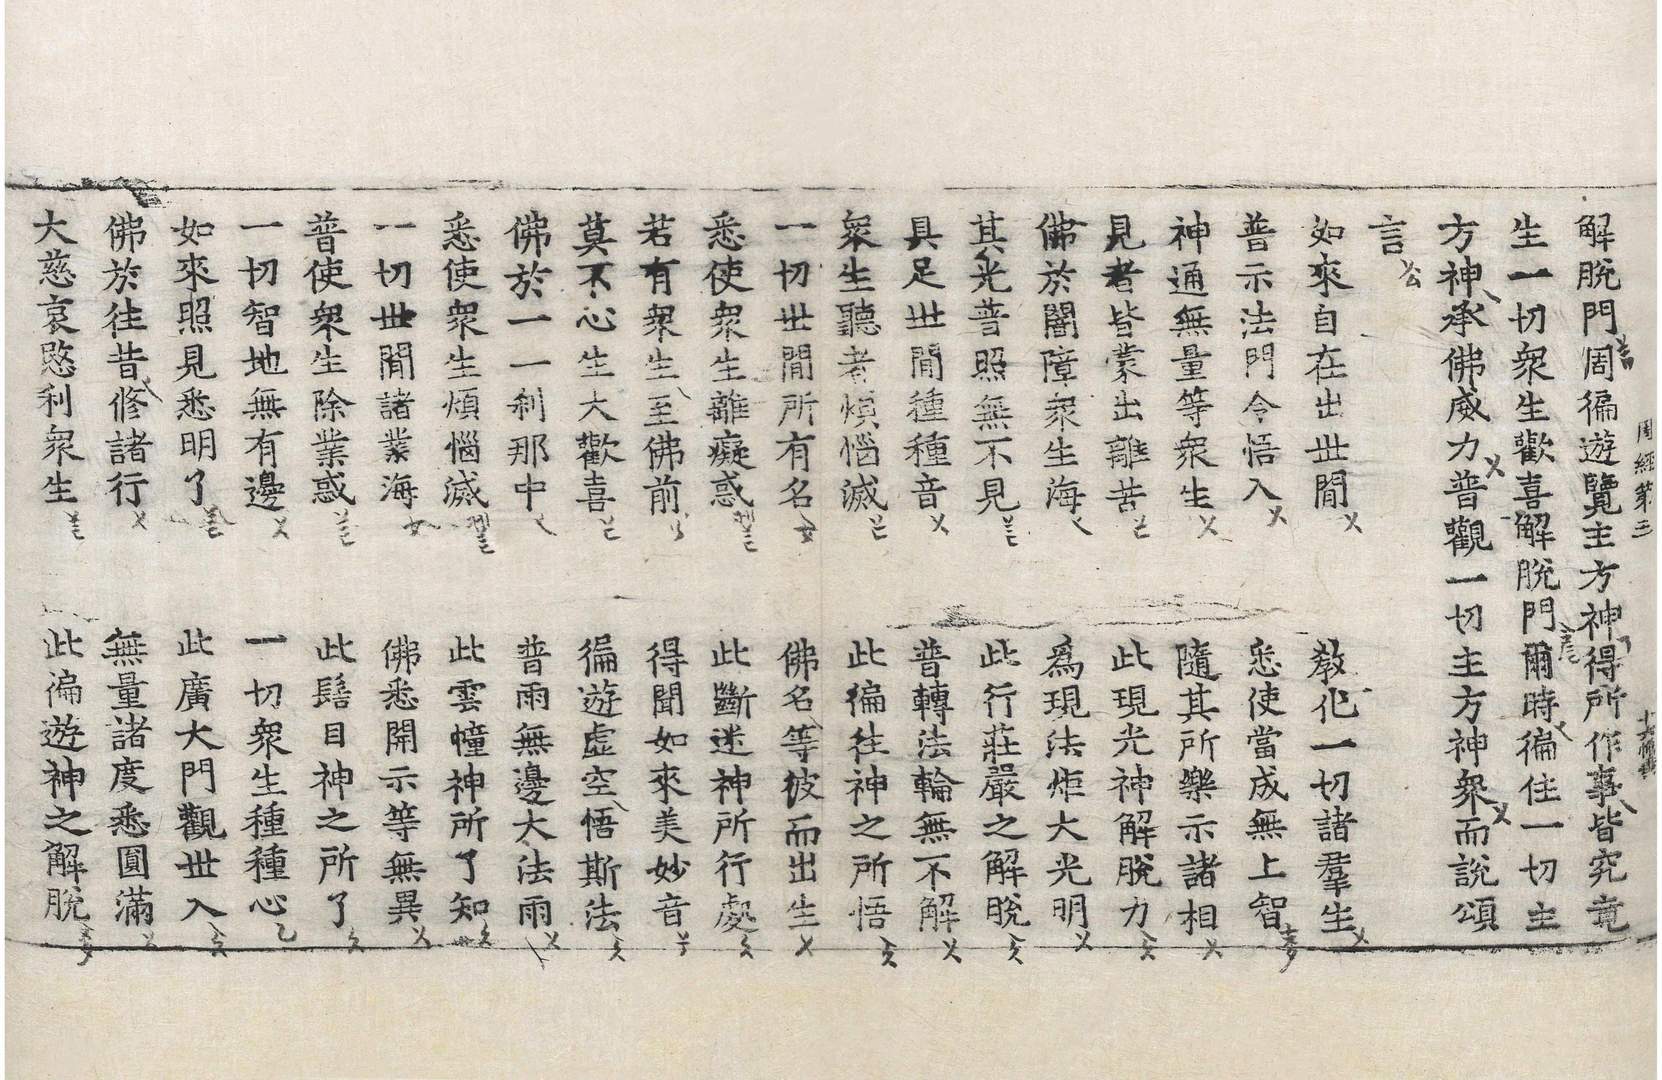 解脫門周徧遊覽主方神得所作事皆究竟
周經第三
生一切衆生歡喜解脫門爾時徧住一切主
方神承佛威力普觀一切主方神衆而說頌
言
如來自在出世間 教化一切諸羣生
普示法門令悟入 悉使當成無上智
神通無量等衆生 隨其所樂示諸相
見者皆蒙出離苦 此現光神解脫力
佛於闇障衆生海 爲現法炬大光明
其光普照無不見 此行莊嚴之解脫
具足世間種種音 普轉法輪無不解
衆生聽者煩惱滅 此徧往神之所悟
一切世間所有名 佛名等彼而出生
悉使衆生離癡惑 此斷迷神所行處
若有衆生至佛前 得聞如來美妙音
莫不心生大歡喜 徧遊虛空悟斯法
佛於一一刹那中 普雨無邊大法雨
悉使衆生煩惱滅 此雲幢神所了知
一切世間諸業海 佛悉開示等無異
普使衆生除業惑 此髻目神之所了
一切智地無有邊 一切衆生種種心
如來照見悉明了 此廣大門觀世入
佛於往昔修諸行 無量諸度悉圓滿
大慈哀愍利衆生 此徧遊神之解脫